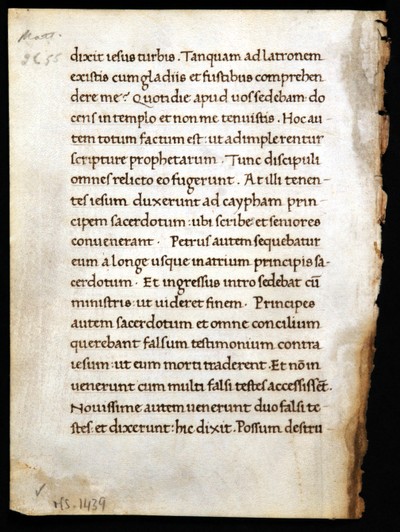 Matt.
26 55
dixit iesus turbis. Tanquam ad latronem
existis cum gladiis et fustibus comprehen
dere me? Quotidie apud uos sedebam do
cens in templo et non me tenuistis. Hoc au-
tem totum factum est: ut adimplerentur
scripture prophetarum. Tunc discipuli
omnes relicto eo fugerunt. At illi tenen-
tes iesum duxerunt ad caypham prin-
cipem sacerdotum: ubi scribe et seniores
conuenerant. Petrus autem sequebatur
eum a longe usque in atrium principis sa-
cerdotum. Et ingressus intro sedebat cū
ministris: ut uideret finem. Principes
autem sacerdotum et omne concilium
querebant falsum testimonium contra
iesum: ut eum morti traderent. Et nō in
uenerunt cum multi falsi testes accessissēt.
Nouissime autem uenerunt duo falsi te-
stes: et dixerunt: hic dixit. Possum destru-
✓ MS. 1439